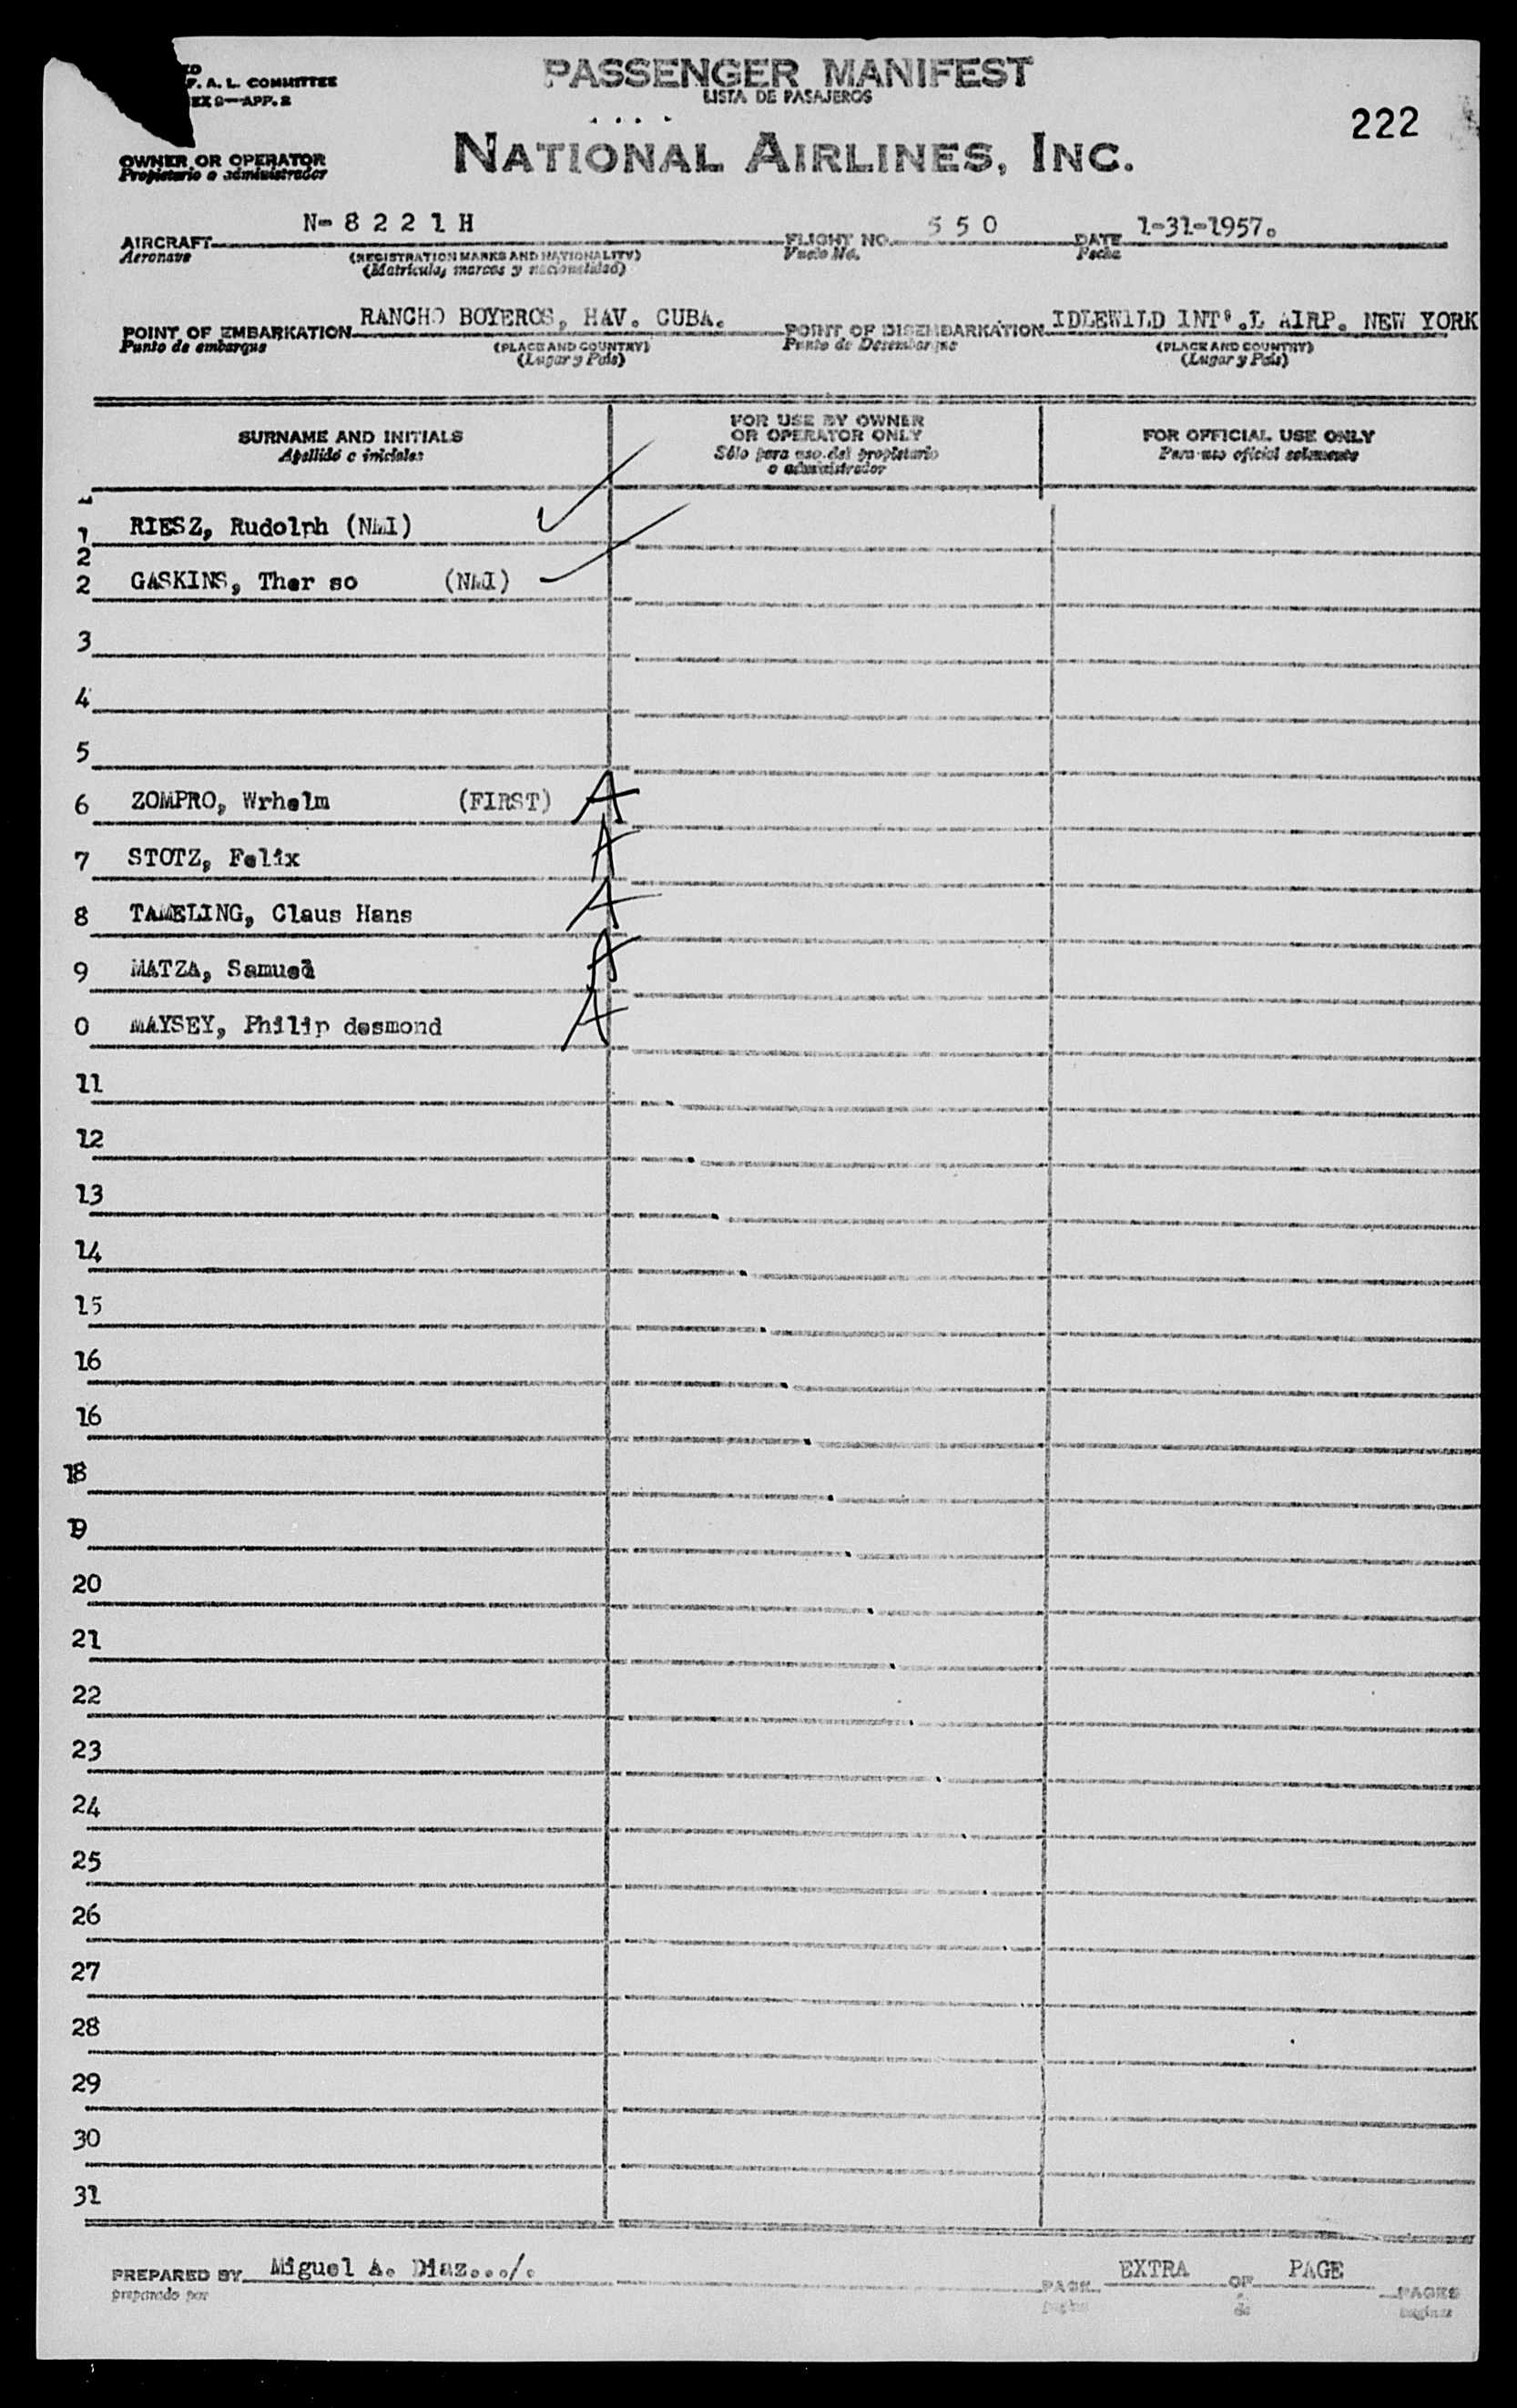 PASSENGER MANIFEST
LISTA DE PASAJEROS
F. A. L. COMMITTEE
EX 9—APP. 2
222
NATIONAL AIRLINES, INC.
OWNER OR OPERATOR
Propietario o administrador
AIRCRAFT N-8 2 2 1 H FLIGHT NO. 5 5 0 DATE 1-31-1957.
Aeronave (REGISTRATION MARKS AND NATIONALITY) Vuelo No. Fecha
(Matricula, marcas y nacionalidad)
POINT OF EMBARKATION RANCHO BOYEROS, HAV. CUBA. POINT OF DISEMBARKATION IDLEWILD INT'.L AIRP. NEW YORK
Punto de embarque (PLACE AND COUNTRY) Punto de Desembarque (PLACE AND COUNTRY)
(Lugar y País) (Lugar y País)
SURNAME AND INITIALS
Apellido e iniciales
FOR USE BY OWNER
OR OPERATOR ONLY
Sólo para uso del propietario
o administrador
FOR OFFICIAL USE ONLY
Para uso oficial solamente
1 RIESZ, Rudolph (NMI)
2
2 GASKINS, Ther so (NMI)
3
4
5
6 ZOMPRO, Wrhelm (FIRST) A
7 STOTZ, Felix A
8 TAMELING, Claus Hans A
9 MATZA, Samuel A
0 MAYSEY, Philip desmond A
11
12
13
14
15
16
16
18
19
20
21
22
23
24
25
26
27
28
29
30
31
PREPARED BY Miguel A. Diaz.../. PAGE EXTRA OF PAGE PAGES
preparado por página de páginas